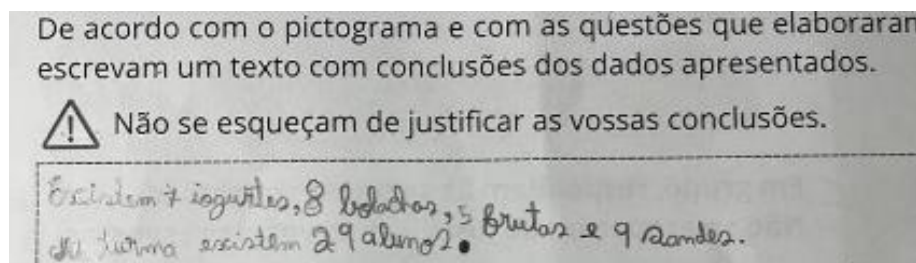 De acordo com o pictograma e com as questões que elaboraram
escrevam um texto com conclusões dos dados apresentados.
Não se esqueçam de justificar as vossas conclusões.
Existem 7 iogurtes, 8 bolachas, 5 frutas e 9 sandes.
turma existem 29 alunos.